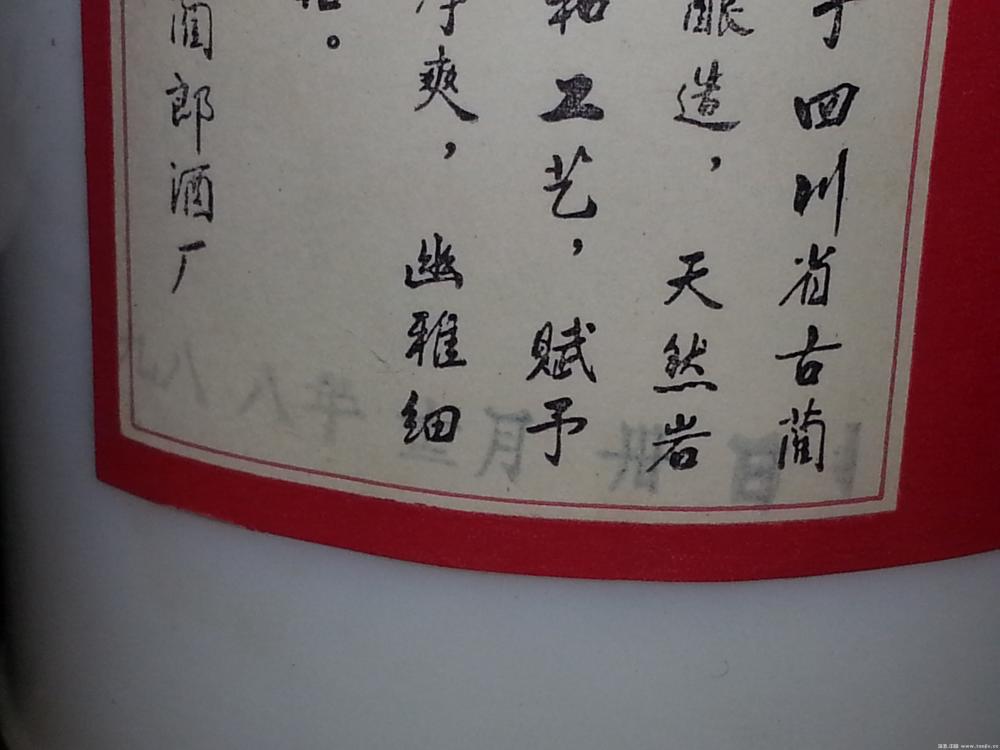 于四川省古蔺
酿造，天然岩
和工艺，赋予
爽，幽雅细
。
蔺郎酒厂
八八年 月